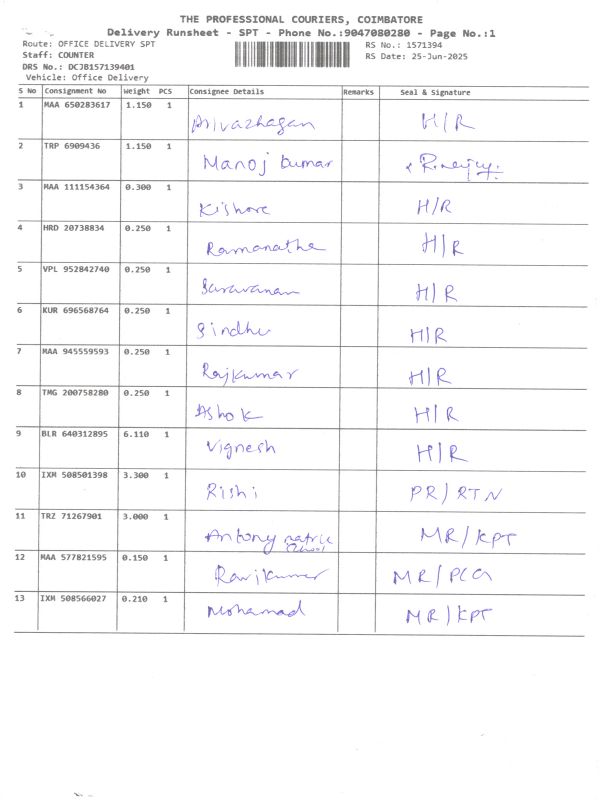 THE PROFESSIONAL COURIERS, COIMBATORE
Delivery Runsheet - SPT - Phone No.:9047080280 - Page No.:1
Route: OFFICE DELIVERY SPT RS No.: 1571394
Staff: COUNTER RS Date: 25-Jun-2025
DRS No.: DCJB157139401
Vehicle: Office Delivery
S No Consignment No Weight PCS Consignee Details Remarks Seal & Signature
1 MAA 650283617 1.150 1 Arivazhagan H/R
2 TRP 6909436 1.150 1 Manoj kumar
3 MAA 111154364 0.300 1 Kishore H/R
4 HRD 20738834 0.250 1 Ramanatha H/R
5 VPL 952842740 0.250 1 Saravanan H/R
6 KUR 696568764 0.250 1 Sindhu H/R
7 MAA 945559593 0.250 1 Rajkumar H/R
8 TMG 200758280 0.250 1 Ashok H/R
9 BLR 640312895 6.110 1 Vignesh H/R
10 IXM 508501398 3.300 1 Rishi PR/RTN
11 TRZ 71267901 3.000 1 Antony matric MR/KPT
School
12 MAA 577821595 0.150 1 Ravikumar MR/PCG
13 IXM 508566027 0.210 1 Mohamad MR/KPT